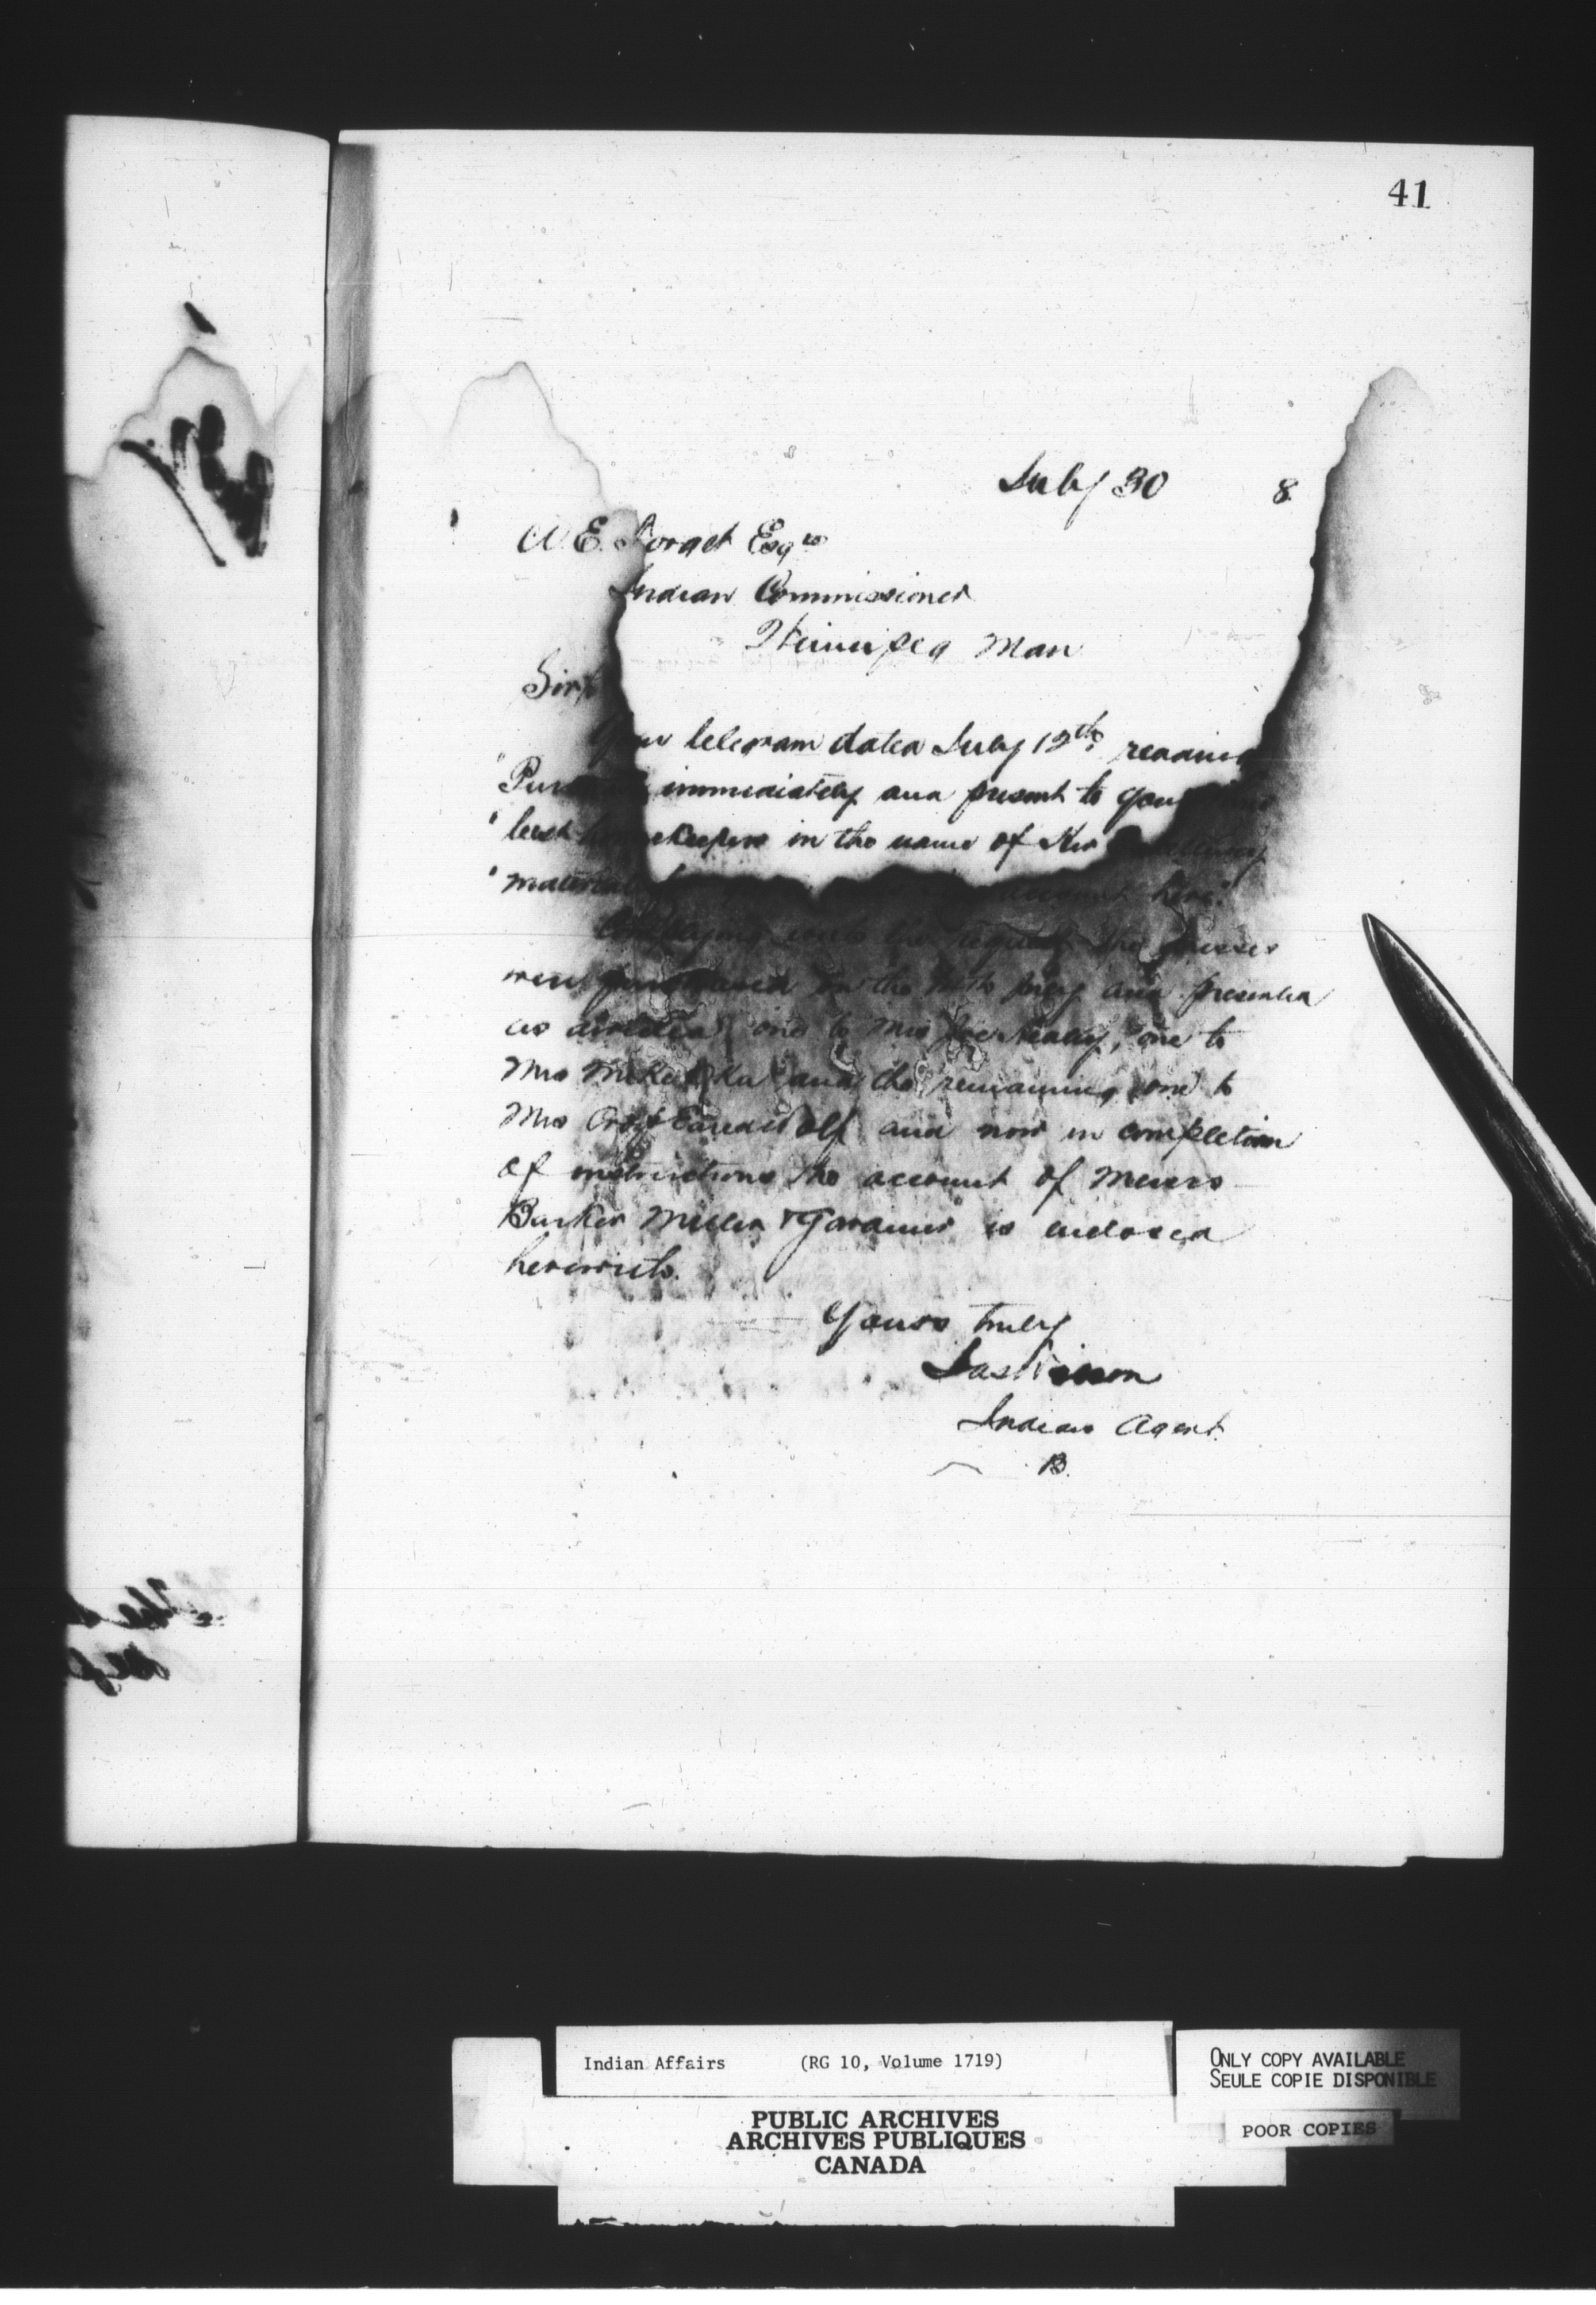 41
July 30 8
A. E. Forget Esqre
Indian Commissioner
Winnipeg Man
Sir,
Your telegram dated July 12th reading
" immediately and present to your
" best housekeepers in the name of Her
" material account here."
with the request the dresses
were purchased on the July and presented
as directed, one to Mrs Joe Healy, one to
Mrs and the remaining one to
Mrs Crop Eared Wolf and now in completion
of instructions the account of Messrs
Barker Miller & Gardner is enclosed
herewith.
Yours truly
Jas Wilson
Indian Agent
B.
Indian Affairs (RG 10, Volume 1719)
PUBLIC ARCHIVES
ARCHIVES PUBLIQUES
CANADA
ONLY COPY AVAILABLE
SEULE COPIE DISPONIBLE
POOR COPIES